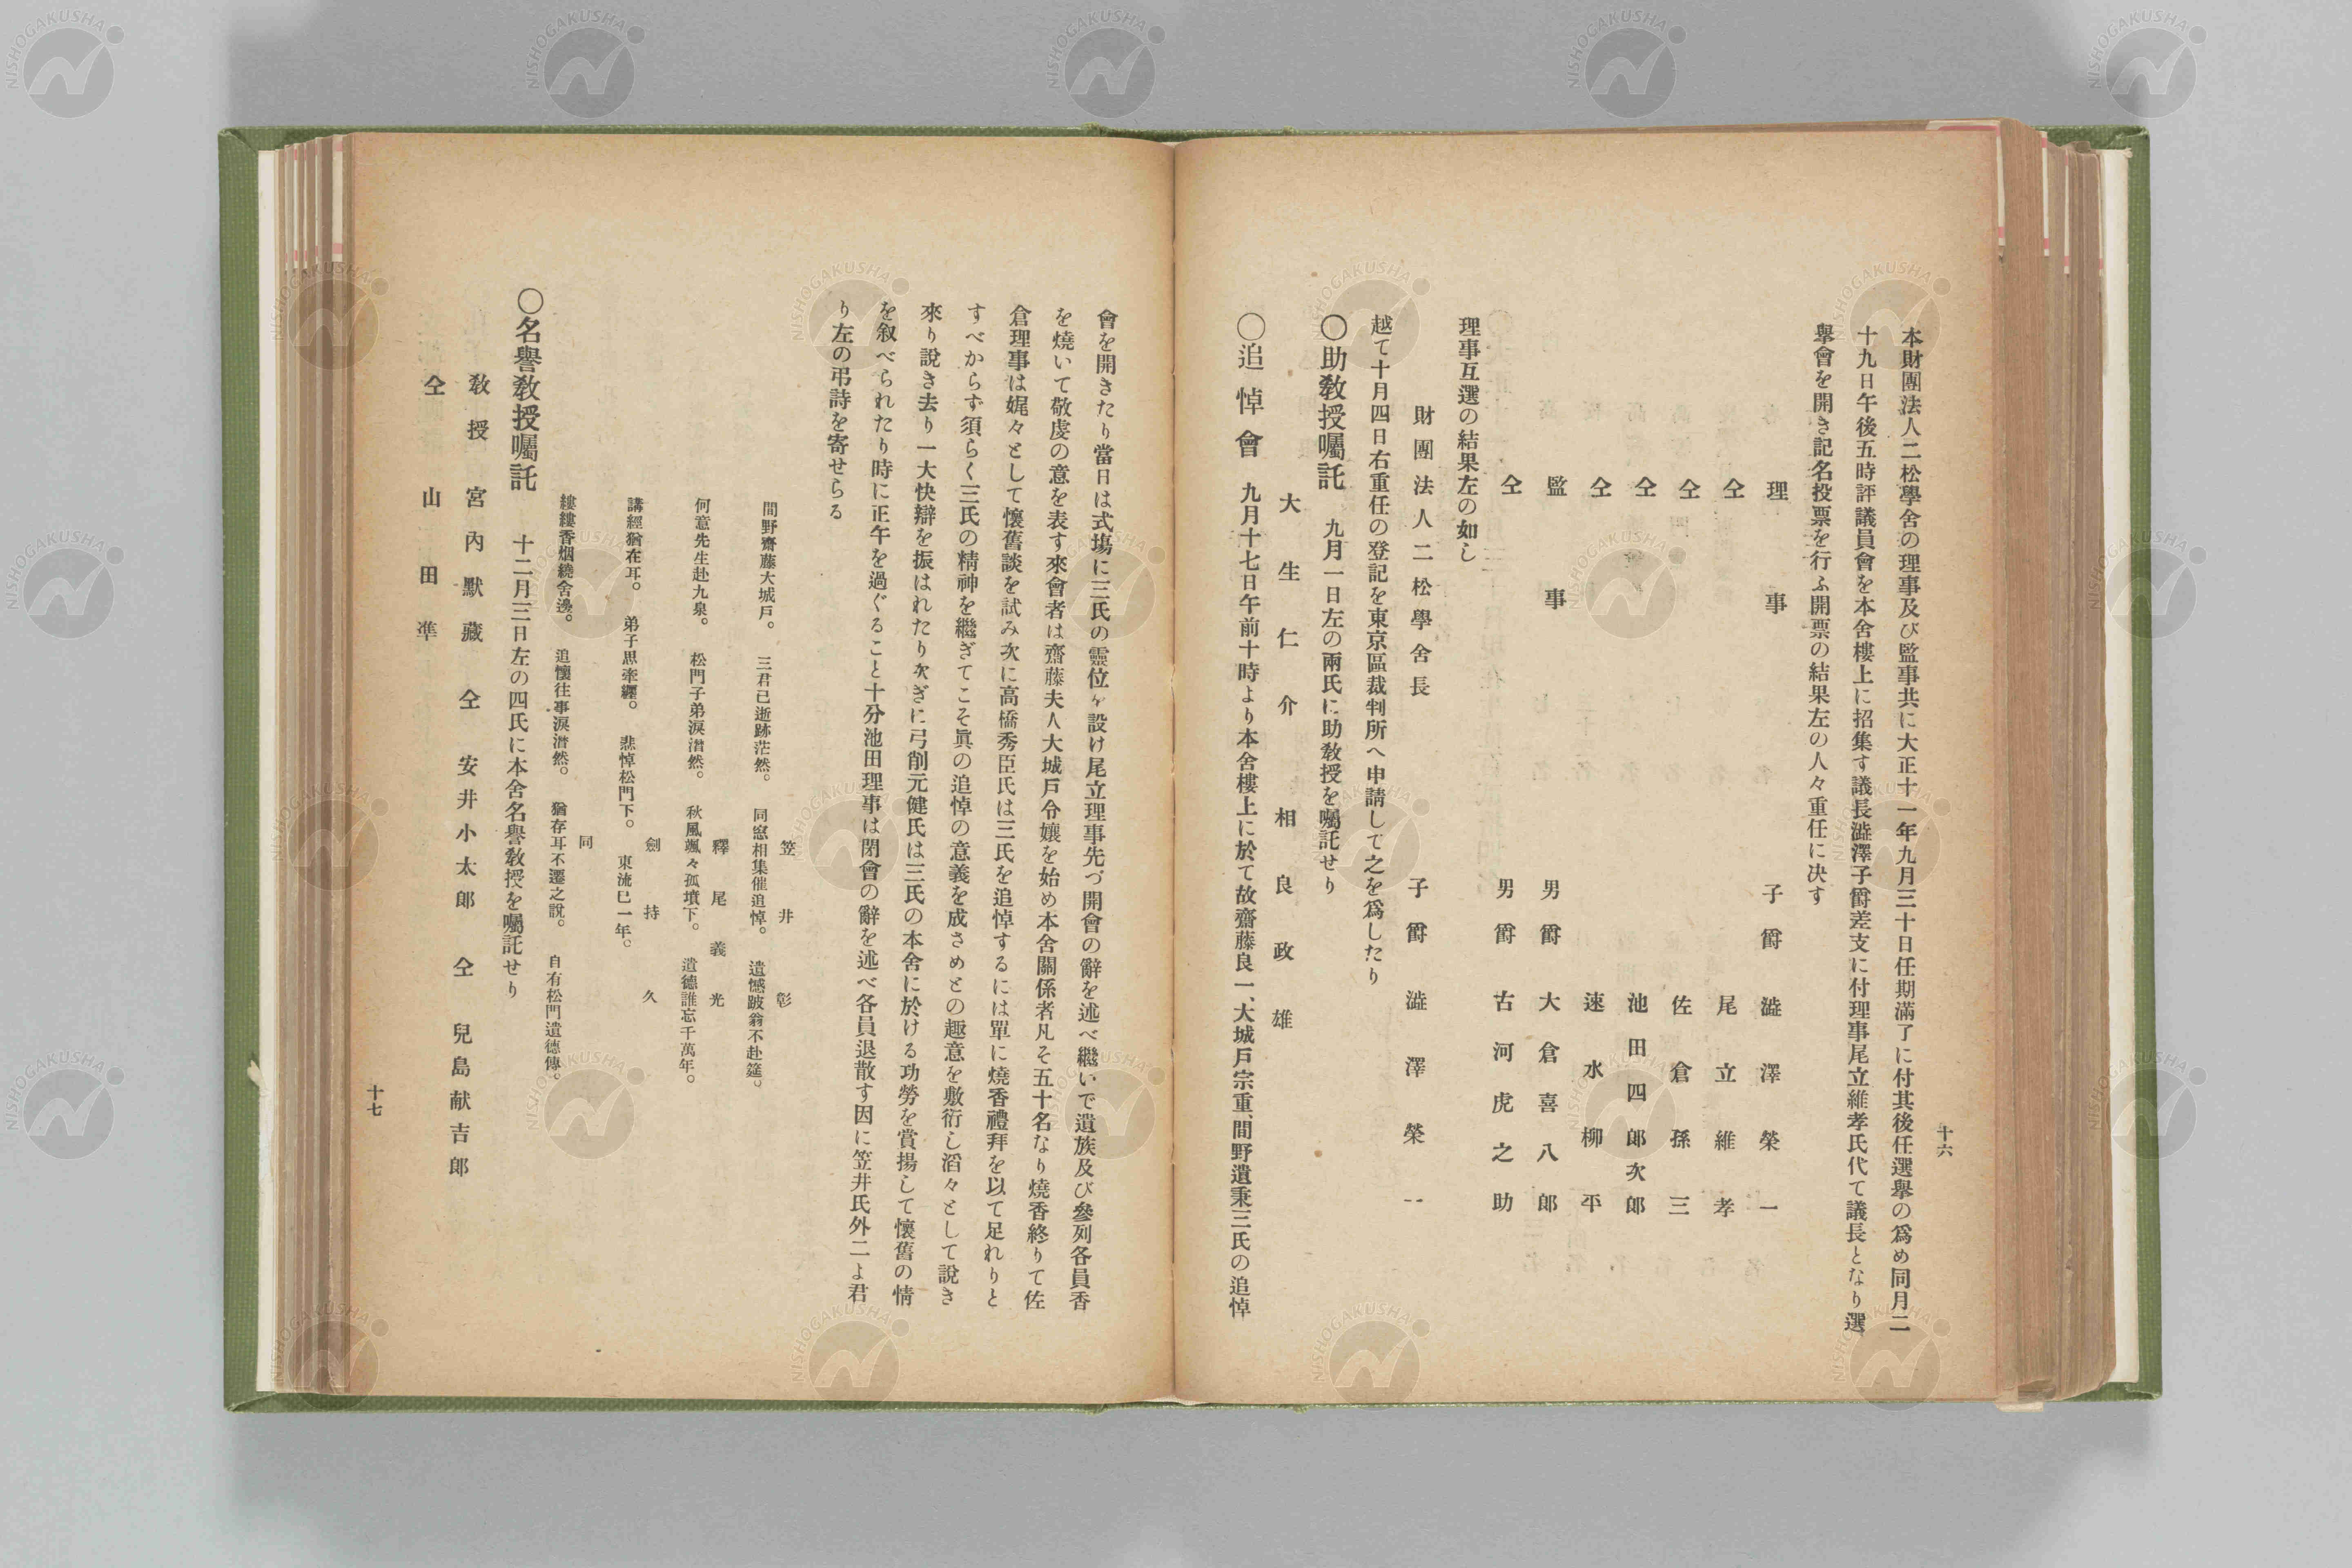 十六
本財團法人二松學舍の理事及び監事共に大正十一年九月三十日任期滿了に付其後任選擧の爲め同月二
十九日午後五時評議員會を本舍樓上に招集す議長澁澤子爵差支に付理事尾立維孝氏代て議長となり選
擧會を開き記名投票を行ふ開票の結果左の人々重任に决す
理事 子爵 澁澤榮一
仝 尾立維孝
仝 佐倉孫三
仝 池田四郎次郎
仝 速水柳平
監事 男爵 大倉喜八郎
仝 男爵 古河虎之助
理事互選の結果左の如し
財團法人二松學舍長 子爵 澁澤榮一
越て十月四日右重任の登記を東京區裁判所へ申請して之を爲したり
〇助敎授囑託 九月一日左の兩氏に助敎授を囑託せり
大生仁介 相良政雄
〇追悼會 九月十七日午前十時より本舍樓上に於て故齋藤良一、大城戸宗重、間野遺秉三氏の追悼
會を開きたり當日は式塲に三氏の靈位を設け尾立理事先づ開會の辭を述べ繼いで遺族及び參列各員香
を燒いて敬虔の意を表す來會者は齋藤夫人大城戸令孃を始め本舍關係者凡そ五十名なり燒香終りて佐
倉理事は娓々として懷舊談を試み次に高橋秀臣氏は三氏を追悼するには單に燒香禮拜を以て足れりと
すべからず須らく三氏の精神を繼ぎてこそ眞の追悼の意義を成さめとの趣意を敷衍し滔々として說き
來り說き去り一大快辯を振はれたり次ぎに弓削元健氏は三氏の本舍に於ける功勞を賞揚して懷舊の情
を叙べられたり時に正午を過ぐること十分池田理事は閉會の辭を述べ各員退散す因に笠井氏外二よ君
り左の弔詩を寄せらる
笠井彰
間野齋藤大城戸。 三君已逝跡茫然。 同窓相集催追悼。 遺憾跛翁不赴筵。
釋尾義光
何意先生赴九泉。 松門子弟淚潸然。 秋風颯々孤墳下。 遺德誰忘千萬年。
劍持久
講經猶在耳。 弟子思牽纒。 悲悼松門下。 東流已一年。
同
縷縷香烟繞舍邊。 追懷往事淚潸然。 猶存耳不遷之說。 自有松門遺德傳。
〇名譽敎授囑託 十二月三日左の四氏に本舍名譽敎授を囑託せり
敎授 宮內默藏 仝 安井小太郎 仝 兒島献吉郎
仝 山田準
十七
NISHOGAKUSHA